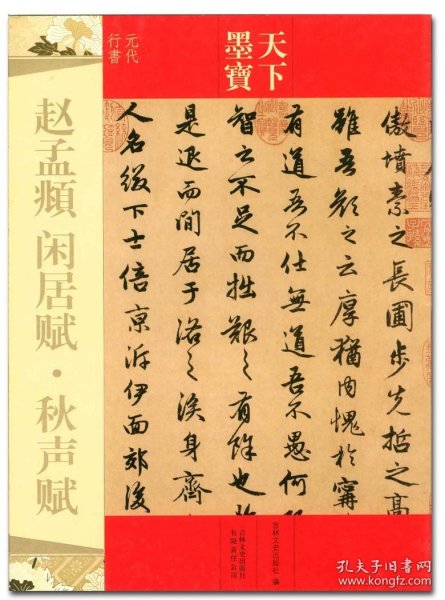 天下
墨寶
元代
行書
赵孟頫 闲居赋·秋声赋
傲墳素之長圃步先哲之高
雖吾顔之云厚猶内愧於甯
有道吾不仕無道吾不愚何
智之不足而拙艱之有餘也於
是退而閒居于洛之涘身齊
人名綴下士倍京泝伊面郊後
吉林文史出版社 编
吉林文史出版社
有限责任公司
孔夫子旧书网
www.kongfz.com